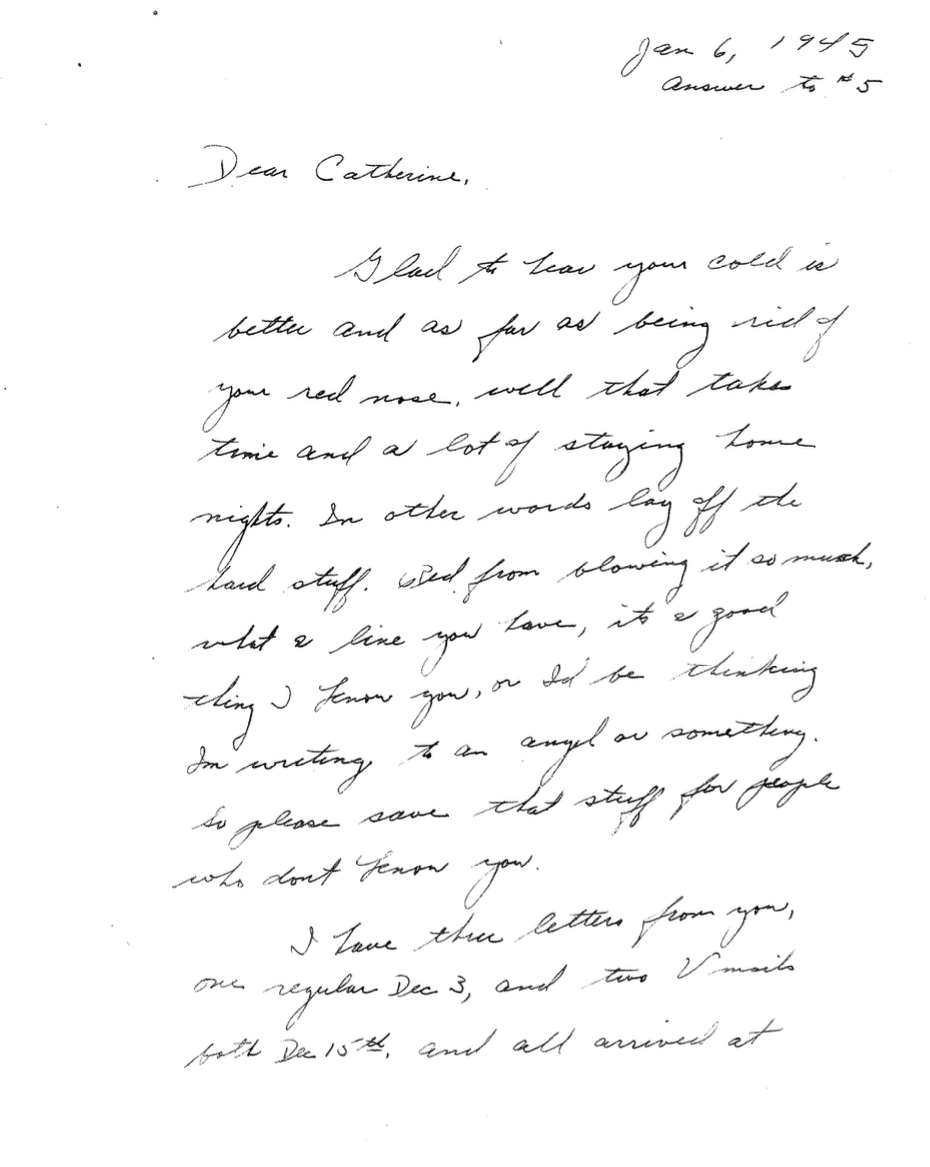 Jan 6, 1945
Answer to #5
Dear Catherine,
Glad to hear your cold is
better and as far as being rid of
your red nose, well that takes
time and a lot of staying home
nights. In other words lay off the
hard stuff. Red from blowing it so much,
what a line you have, its a good
thing I know you, or Id be thinking
Im writing to an angel or something.
So please save that stuff for people
who dont know you.
I have three letters from you,
one regular Dec 3, and two V mails
both Dec 15th, and all arrived at